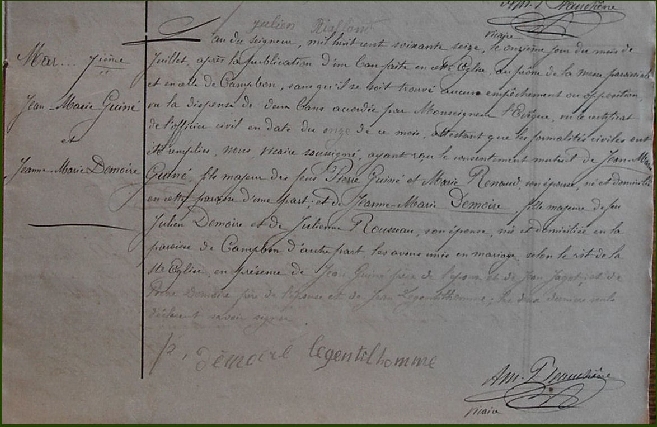 Julien
vicaire
L'an du Seigneur, mil huit cent soixante seize, le onzième jour du mois de
Mar... 7ième
Juillet, après la publication d'un ban faite en cette Eglise, au prône de la messe paroissiale
et en celle de Campbon, sans qu'il se soit trouvé aucun empêchement ou opposition
Jean Marie Guiné
vu la dispense de deux bans accordée par Monseigneur l'Evêque, vu le certificat
et
de l'officier civil en date du onze de ce mois, attestant que les formalités civiles ont
Jeanne-Marie Demoire
été remplies, nous vicaire soussigné, ayant reçu le consentement mutuel de Jean-Marie
Guiné, fils majeur des feus Pierre Guiné et Marie Renaud, son épouse, né et domicilié
en cette paroisse d'une part; et de Jeanne-Marie Demoire fille majeure de feu
Julien Demoire et de Julienne Rousseau, son épouse, née et domiciliée en la
paroisse de Campbon d'autre part les avons unis en mariage selon le rit de la
Ste Eglise, en présence de Jean Guiné frère de l'époux et de Jean
Demoire frère de l'épouse et de Jean Legentilhomme; les deux derniers seuls
savoir signer
Demoire legentilhomme